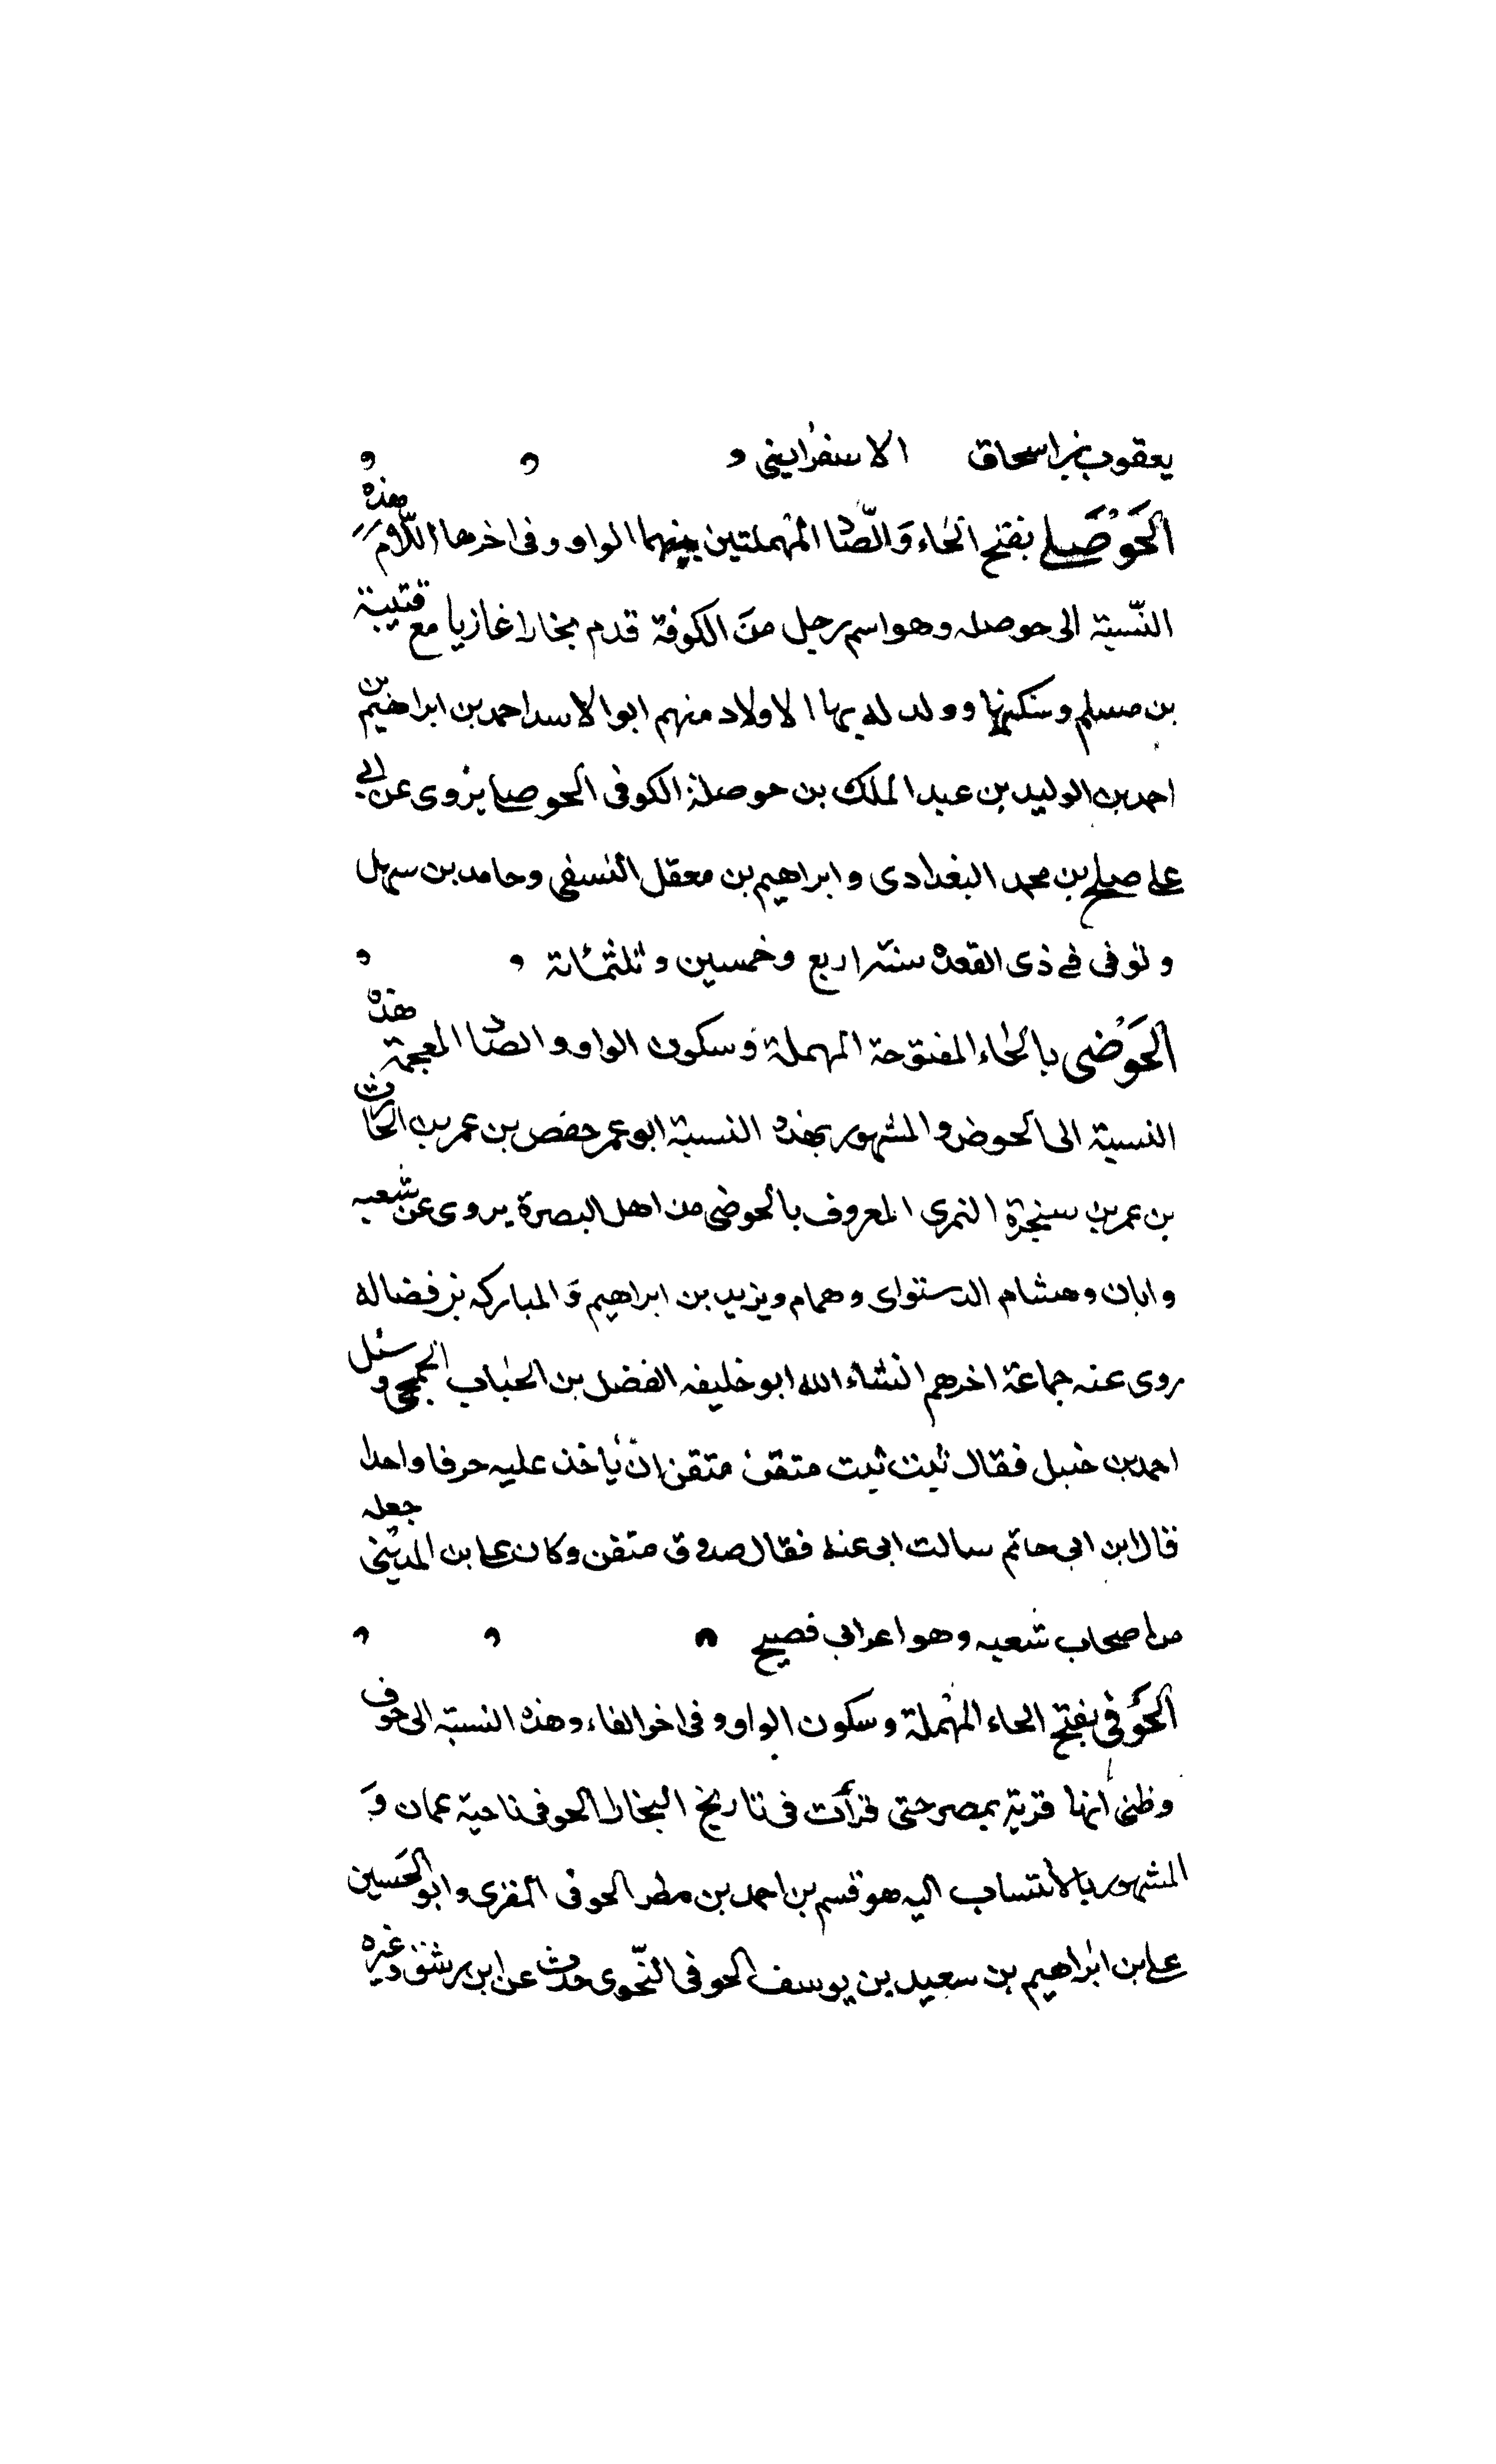 يعقوب بن اسحاق الاسفرايينى و
الحَوْصَلي بفتح الحاء وَالصّاد المهملتين بينهما الواو وفى اخرها اللّام هذه
النّسبة الى حوصله وهو اسم رجل منَ الكوفة قدم بخارا غازيا مع قتيبة
بن مسلم وسكنها وولد له بها الاولاد منهم ابوالاسد احمد بن ابراهيم بن
احمد بن الوليد بن عبد الملك بن حوصلة الكوفى الحوصلى يروى عن ابي
على صلح بن محمد البغدادى وابراهيم بن معقل النسفى وحامد بن سهل
وتوفى في ذى القعده سنة اربع وخمسين وثلثمائة
الحَوْضى بالحاء المفتوحة المهملة وسكون الواو والضاد المعجمة هذه
النسبة الى الحوض والمشهور بهذه النسبة ابو عمر حفص بن عمر بن الحارث
بن عمر بن سنجرة النمرى المعروف بالحوضى من اهل البصرة يروى عن شعبه
وابان وهشام الدستواى وهمام ويزيد بن ابراهيم وَالمباركه بن فضاله
روى عنه جماعة اخرهم انشاء الله ابو خليفه الفضل بن الحباب الجمحى وسئل
احمد بن حنبل فقال ثبت ثبت متقن متقن انّ ياخذ عليه حرفا واحدا
قال ابن ابى حاتم سالت ابى عنه فقال صدوق متقن وكان على بن المدينى جعله
من اصحاب شعبه وهو اعرابى فصيح
الحَوفى بفتح الحاء المهملة وسكون الواو وفى اخر الفاء وهذه النسبة الى حوف
وظنى انها قرية بمصر حتى قرأت فى تاريخ البخارا الحوفى ناحية عمان وَ
المشهور بالانتساب اليه هو قسم بن احمد بن مطر الحوفى المقرى وابو الحَسين
على بن ابراهيم بن سعيد بن يوسف الحوفى النّحوى حدث عن ابن رشق وغيره